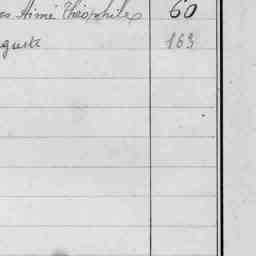 es Aimé Théophile 60
guste 163